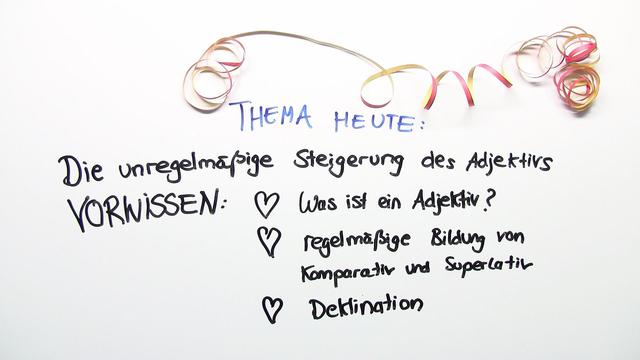 THEMA HEUTE:
Die unregelmäßige Steigerung des Adjektivs
VORWISSEN: ♡ Was ist ein Adjektiv?
♡ regelmäßige Bildung von
Komparativ und Superlativ
♡ Deklination